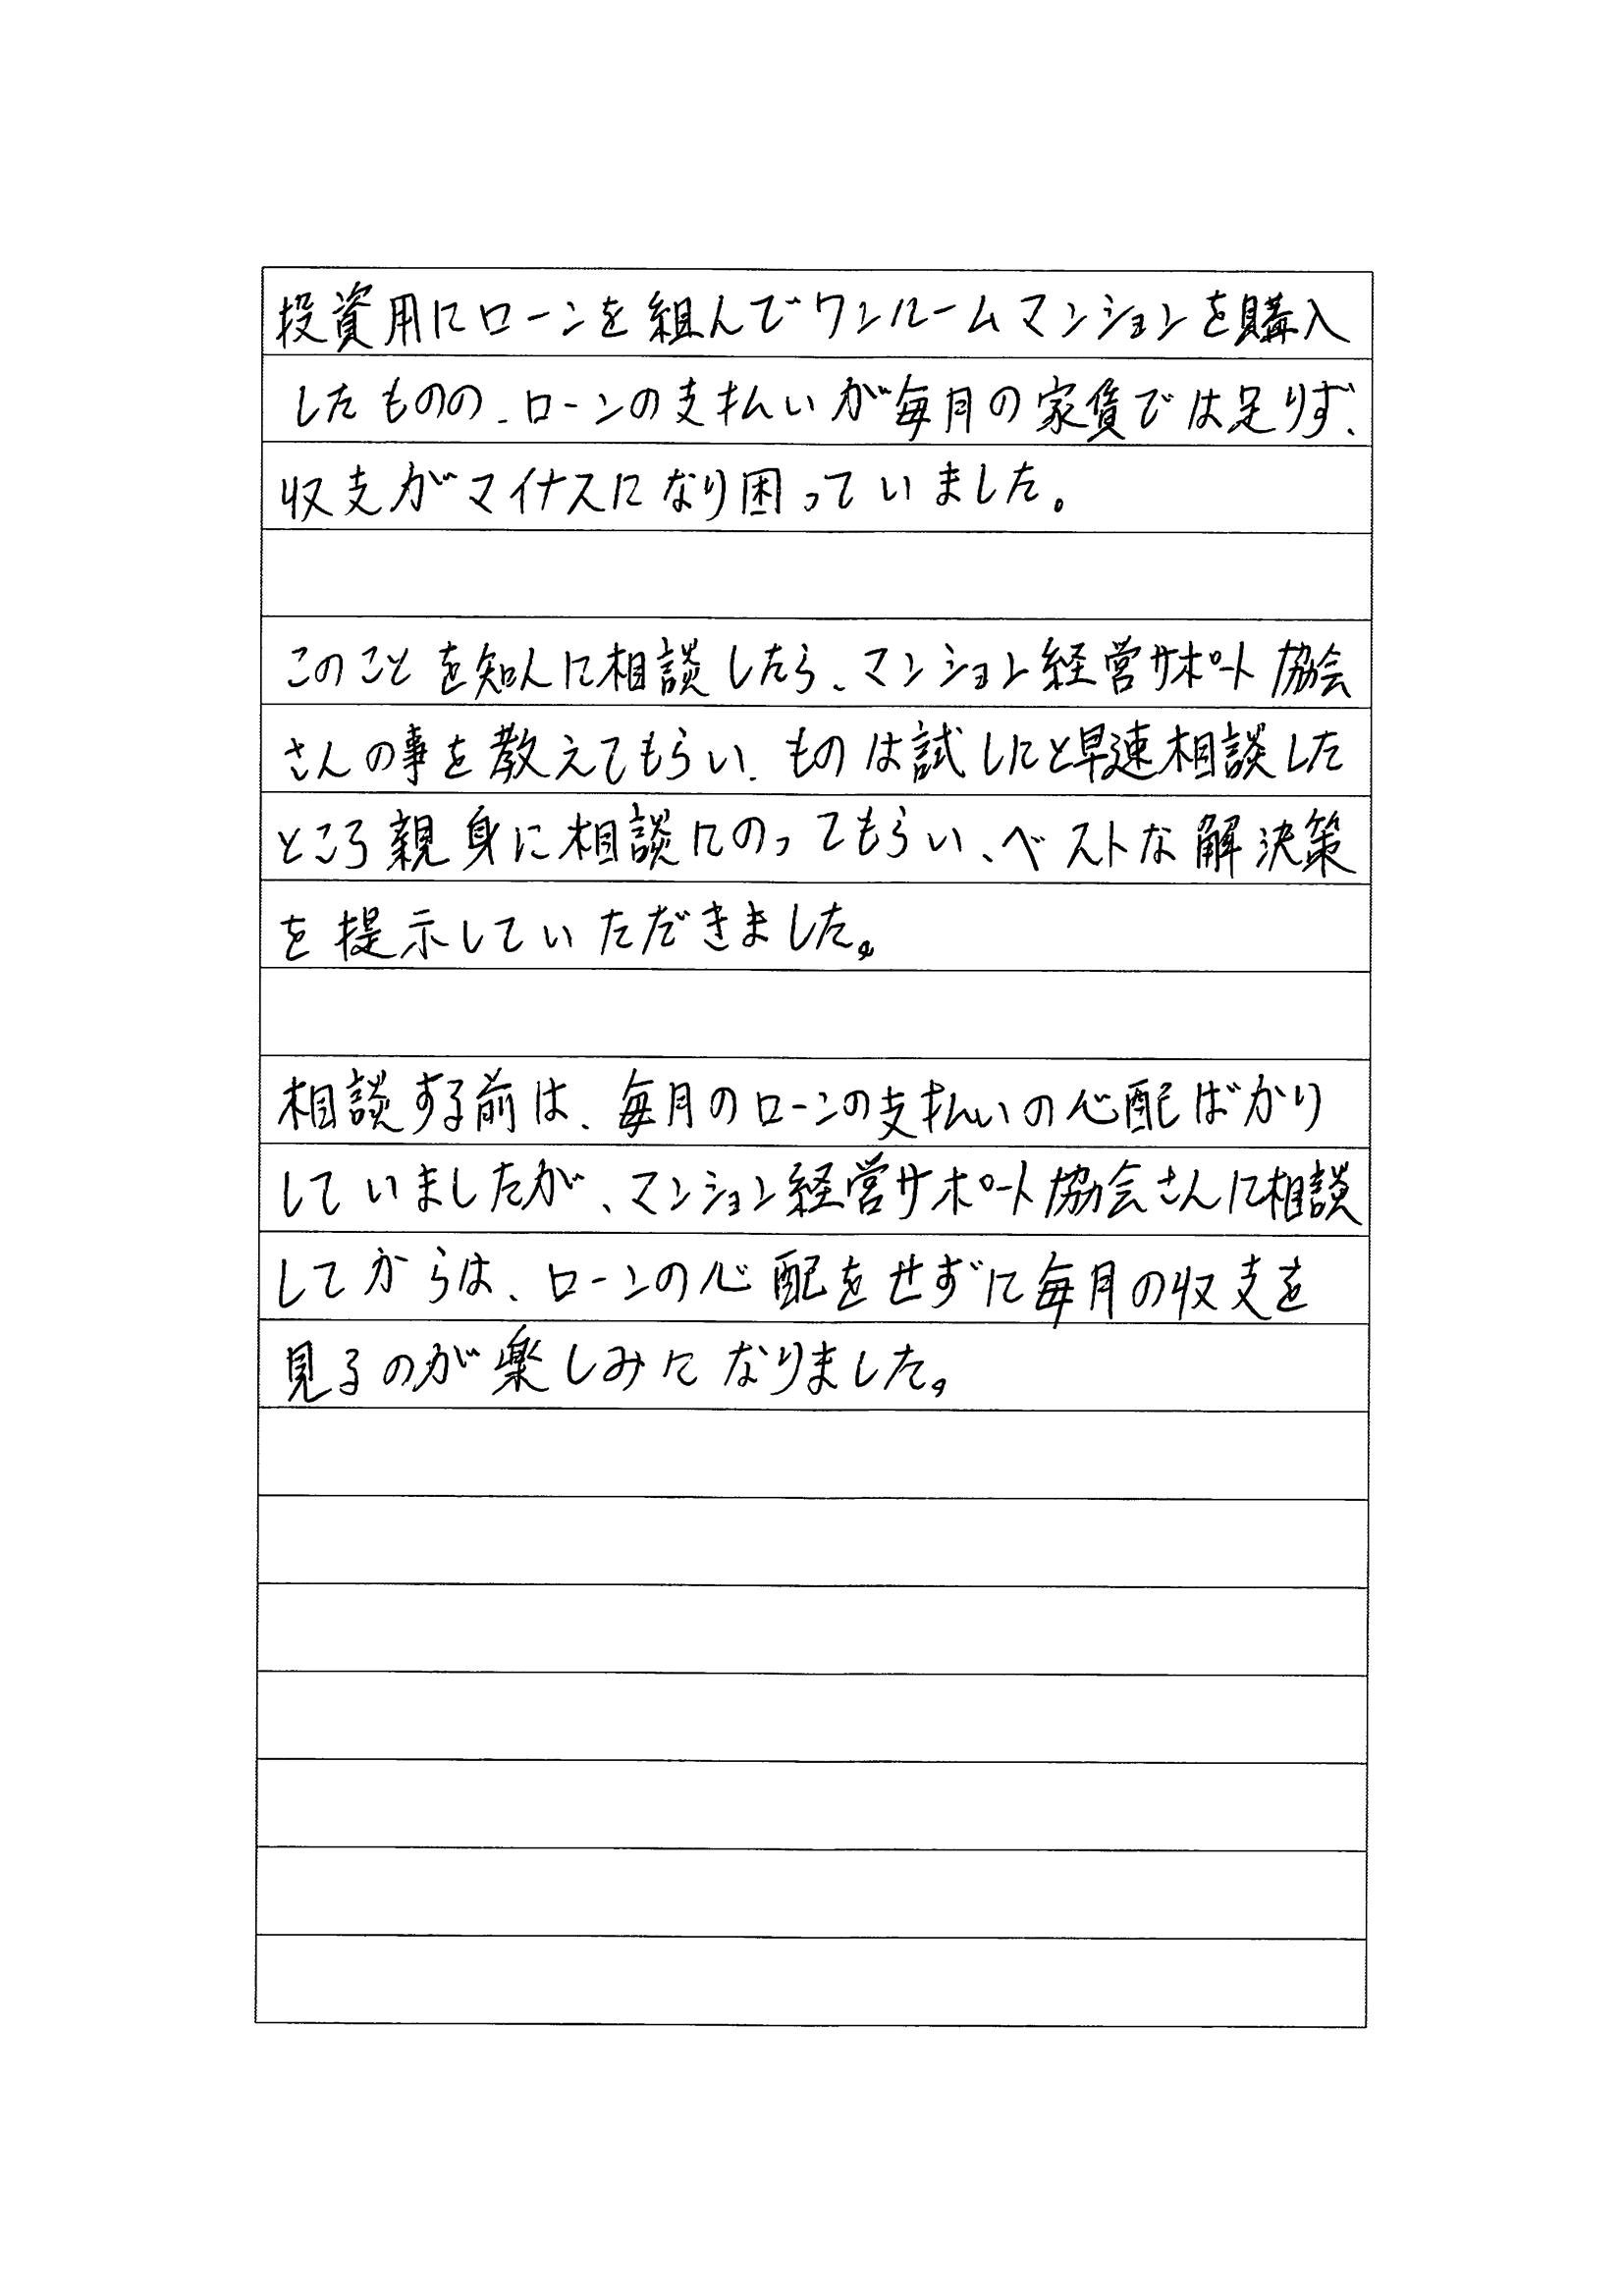 投資用にローンを組んでワンルームマンションを購入
したものの、ローンの支払いが毎月の家賃では足りず、
収支がマイナスになり困っていました。
このことを知人に相談したら、マンション経営サポート協会
さんの事を教えてもらい、ものは試しにと早速相談した
ところ親身に相談にのってもらい、ベストな解決策
を提示していただきました。
相談する前は、毎月のローンの支払いの心配ばかり
していましたが、マンション経営サポート協会さんに相談
してからは、ローンの心配をせずに毎月の収支を
見るのが楽しみになりました。